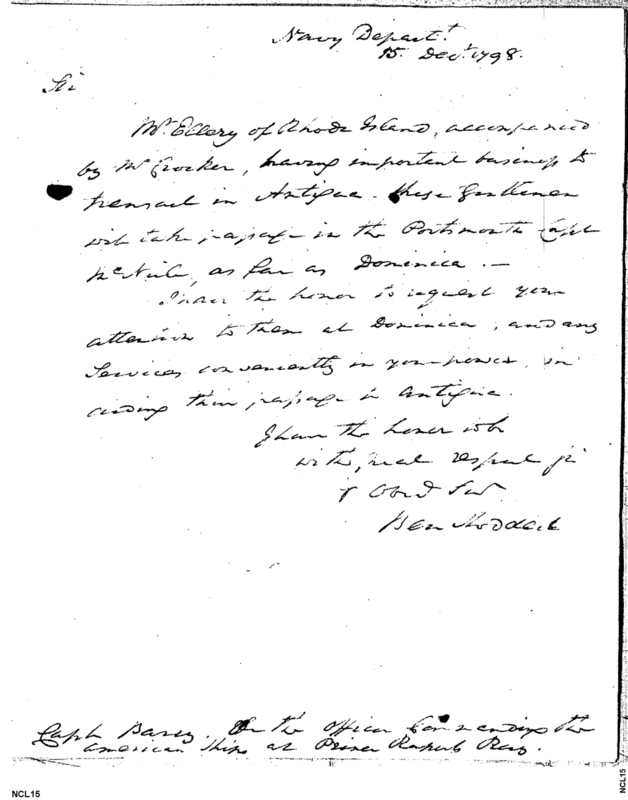 Navy Departt.
15. Decr. 1798.
Sir
Mr. Ellery of Rhode Island, accompanied
by Mr Crocker, having important business to
transact in Antigua. these Gentlemen
will take passage in the Portsmouth Capt
McNeil, as far as Dominica. —
I have the honor to request your
attention to them at Dominica, and any
Services conveniently in your power, in
aiding their passage to Antigua.
I have the honor to be
with great respect Sir
yr Obed Servt
Ben Stoddert
Capt Barry. Or the Officer Commanding the
American Ships at Prince Ruperts Bay.
NCL15
NCL15